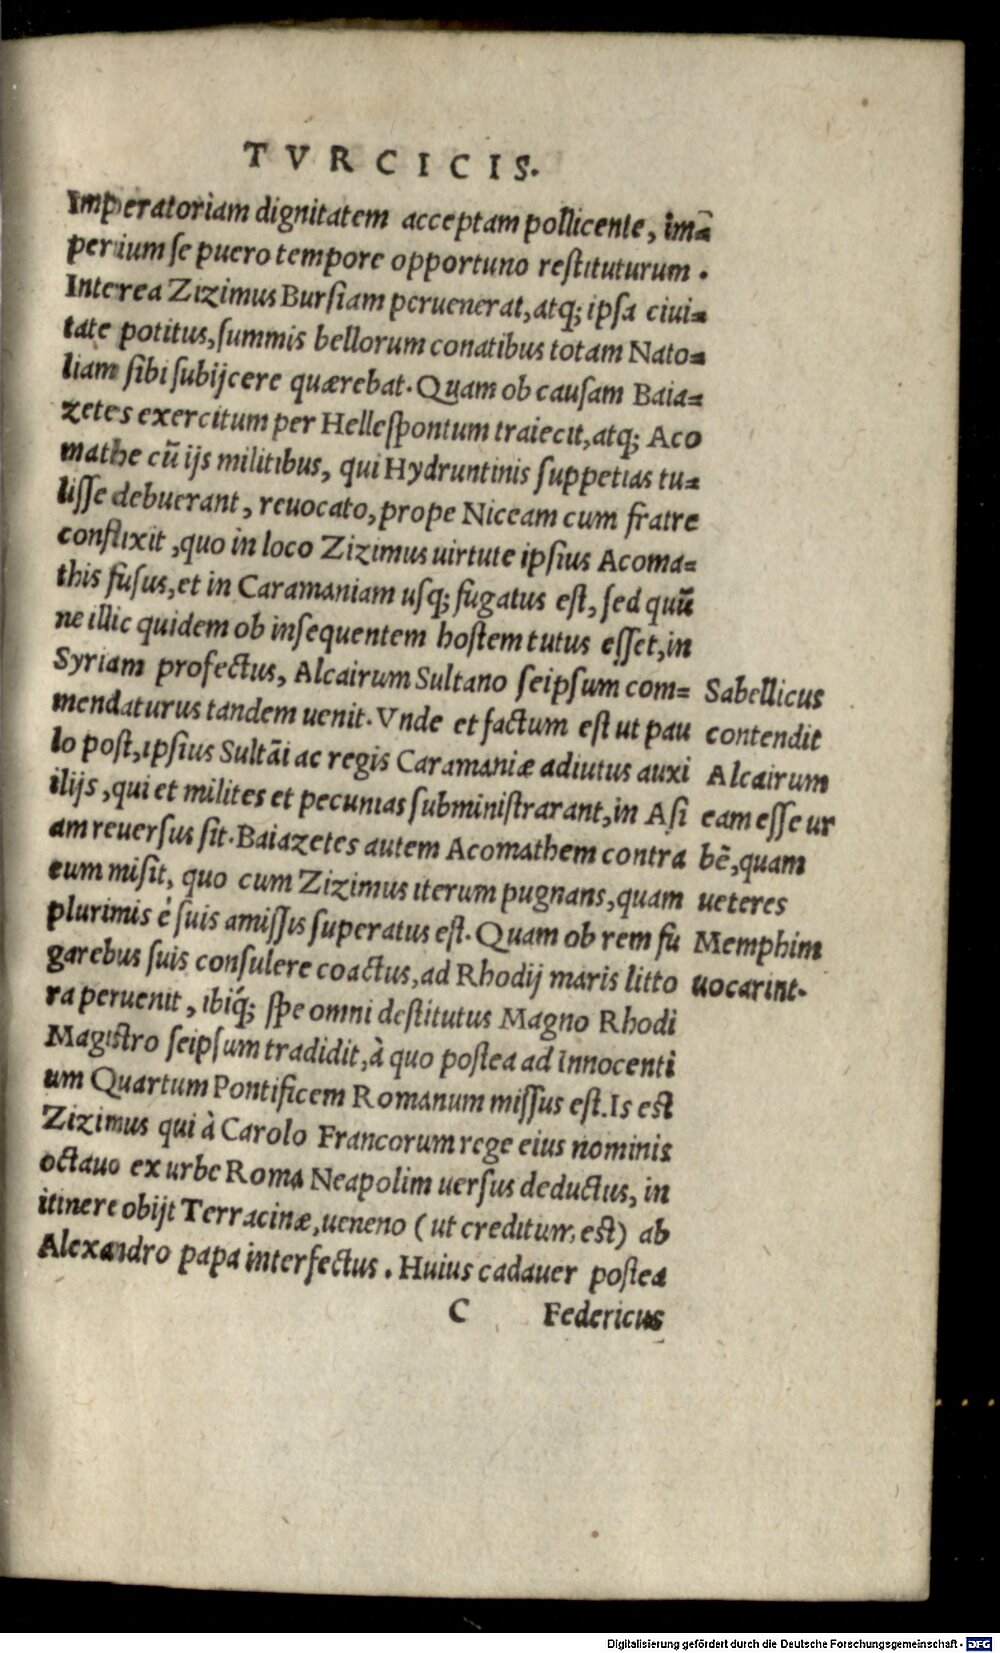 TVRCICIS.
Imperatoriam dignitatem acceptam pollicente, im̃=
perium se puero tempore opportuno restituturum.
Interea Zizimus Bursiam peruenerat, atq; ipsa ciui=
tate potitus, summis bellorum conatibus totam Nato=
liam sibi subijcere quærebat. Quam ob causam Baia=
zetes exercitum per Hellespontum traiecit, atq; Aco
mathe cũ ijs militibus, qui Hydruntinis suppetias tu=
lisse debuerant, reuocato, prope Niceam cum fratre
conflixit, quo in loco Zizimus uirtute ipsius Acoma=
this fusus, et in Caramaniam usq; fugatus est, sed quũ
ne illic quidem ob insequentem hostem tutus esset, in
Syriam profectus, Alcairum Sultano seipsum com=
mendaturus tandem uenit. Vnde et factum est ut pau
lo post, ipsius Sultãi ac regis Caramaniæ adiutus auxi
ilijs, qui et milites et pecunias subministrarant, in Asi
am reuersus sit. Baiazetes autem Acomathem contra
eum misit, quo cum Zizimus iterum pugnans, quam
plurimis é suis amissis superatus est. Quam ob rem fu
garebus suis consulere coactus, ad Rhodij maris litto
ra peruenit, ibiq́; spe omni destitutus Magno Rhodi
Magistro seipsum tradidit, à quo postea ad Innocenti
um Quartum Pontificem Romanum missus est. Is est
Zizimus qui à Carolo Francorum rege eius nominis
octauo ex urbe Roma Neapolim uersus deductus, in
itinere obijt Terracinæ, ueneno (ut creditum, est) ab
Alexandro papa interfectus. Huius cadauer postea
C Federicus
Sabellicus
contendit
Alcairum
eam esse ur
bẽ, quam
ueteres
Memphim
uocarint.
Digitalisierung gefördert durch die Deutsche Forschungsgemeinschaft - DFG